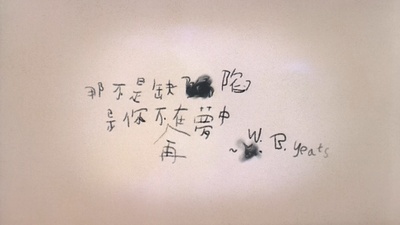 那不是缺陷
是你不在夢中
人再
~ W. B. yeats